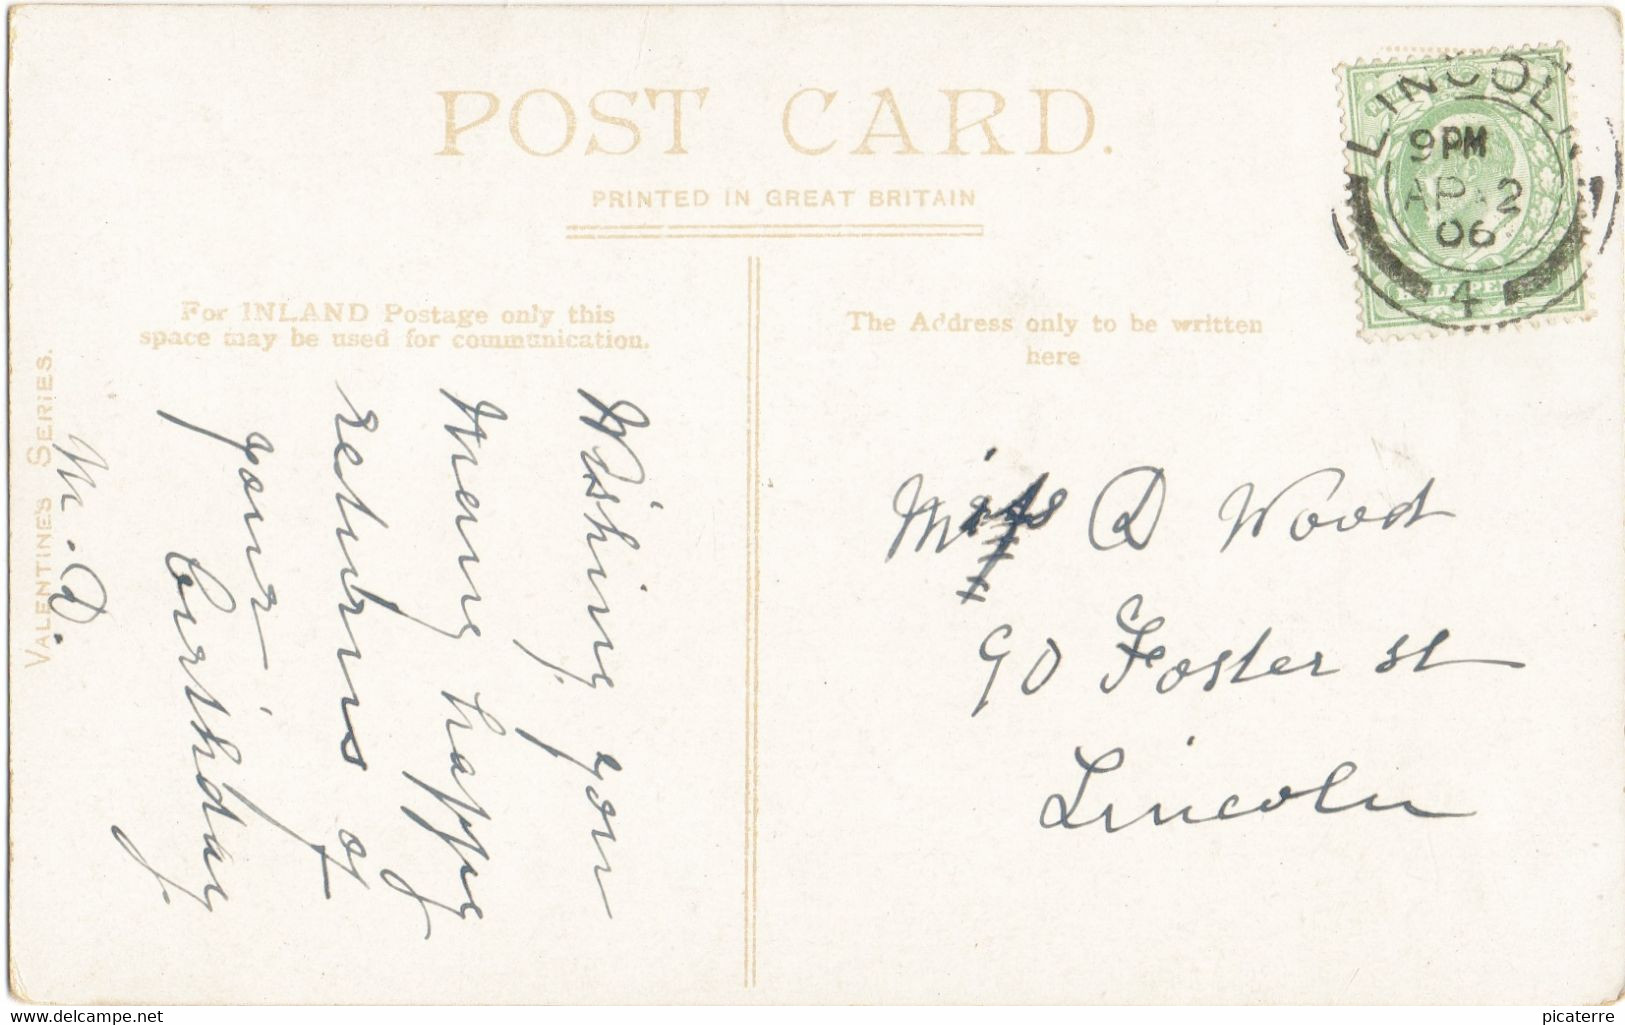 POST CARD.
PRINTED IN GREAT BRITAIN
For INLAND Postage only this
space may be used for communication.
The Address only to be written
here
VALENTINE'S SERIES.
Wishing you
Many happy
returns of
your
birthday
M. D.
Miss D Wood
90 Foster st
Lincoln
LINCOLN
9PM
AP 2
06
4
HALFPENNY
www.delcampe.net
picaterre